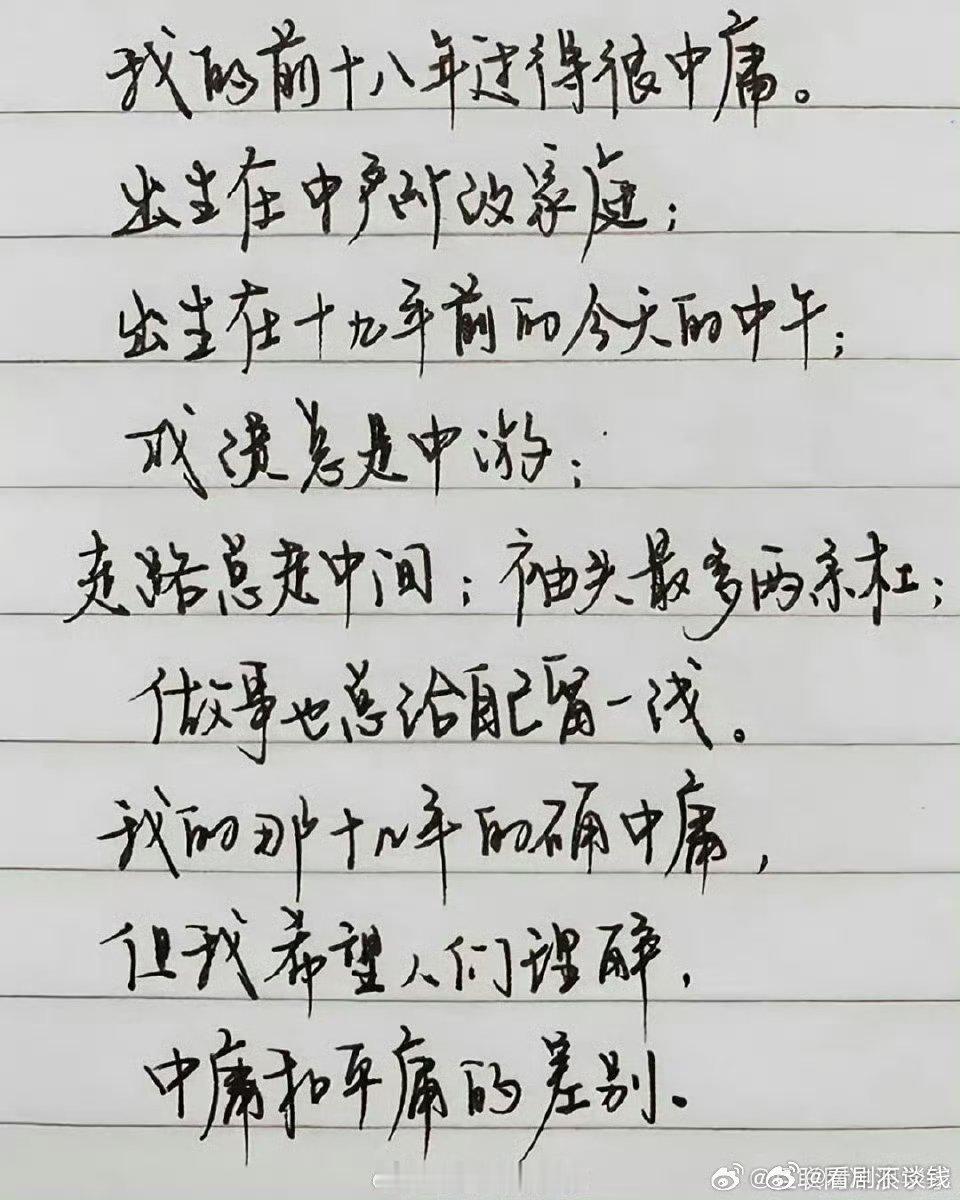 我的前十八年过得很中庸。
出生在中产阶级家庭；
出生在十九年前的今天的中午；
成绩总是中游；
走路总走中间；袖头最多两条杠；
做事也总给自己留一线。
我的那十几年的确中庸，
但我希望人们理解，
中庸和平庸的差别。
看剧不谈钱